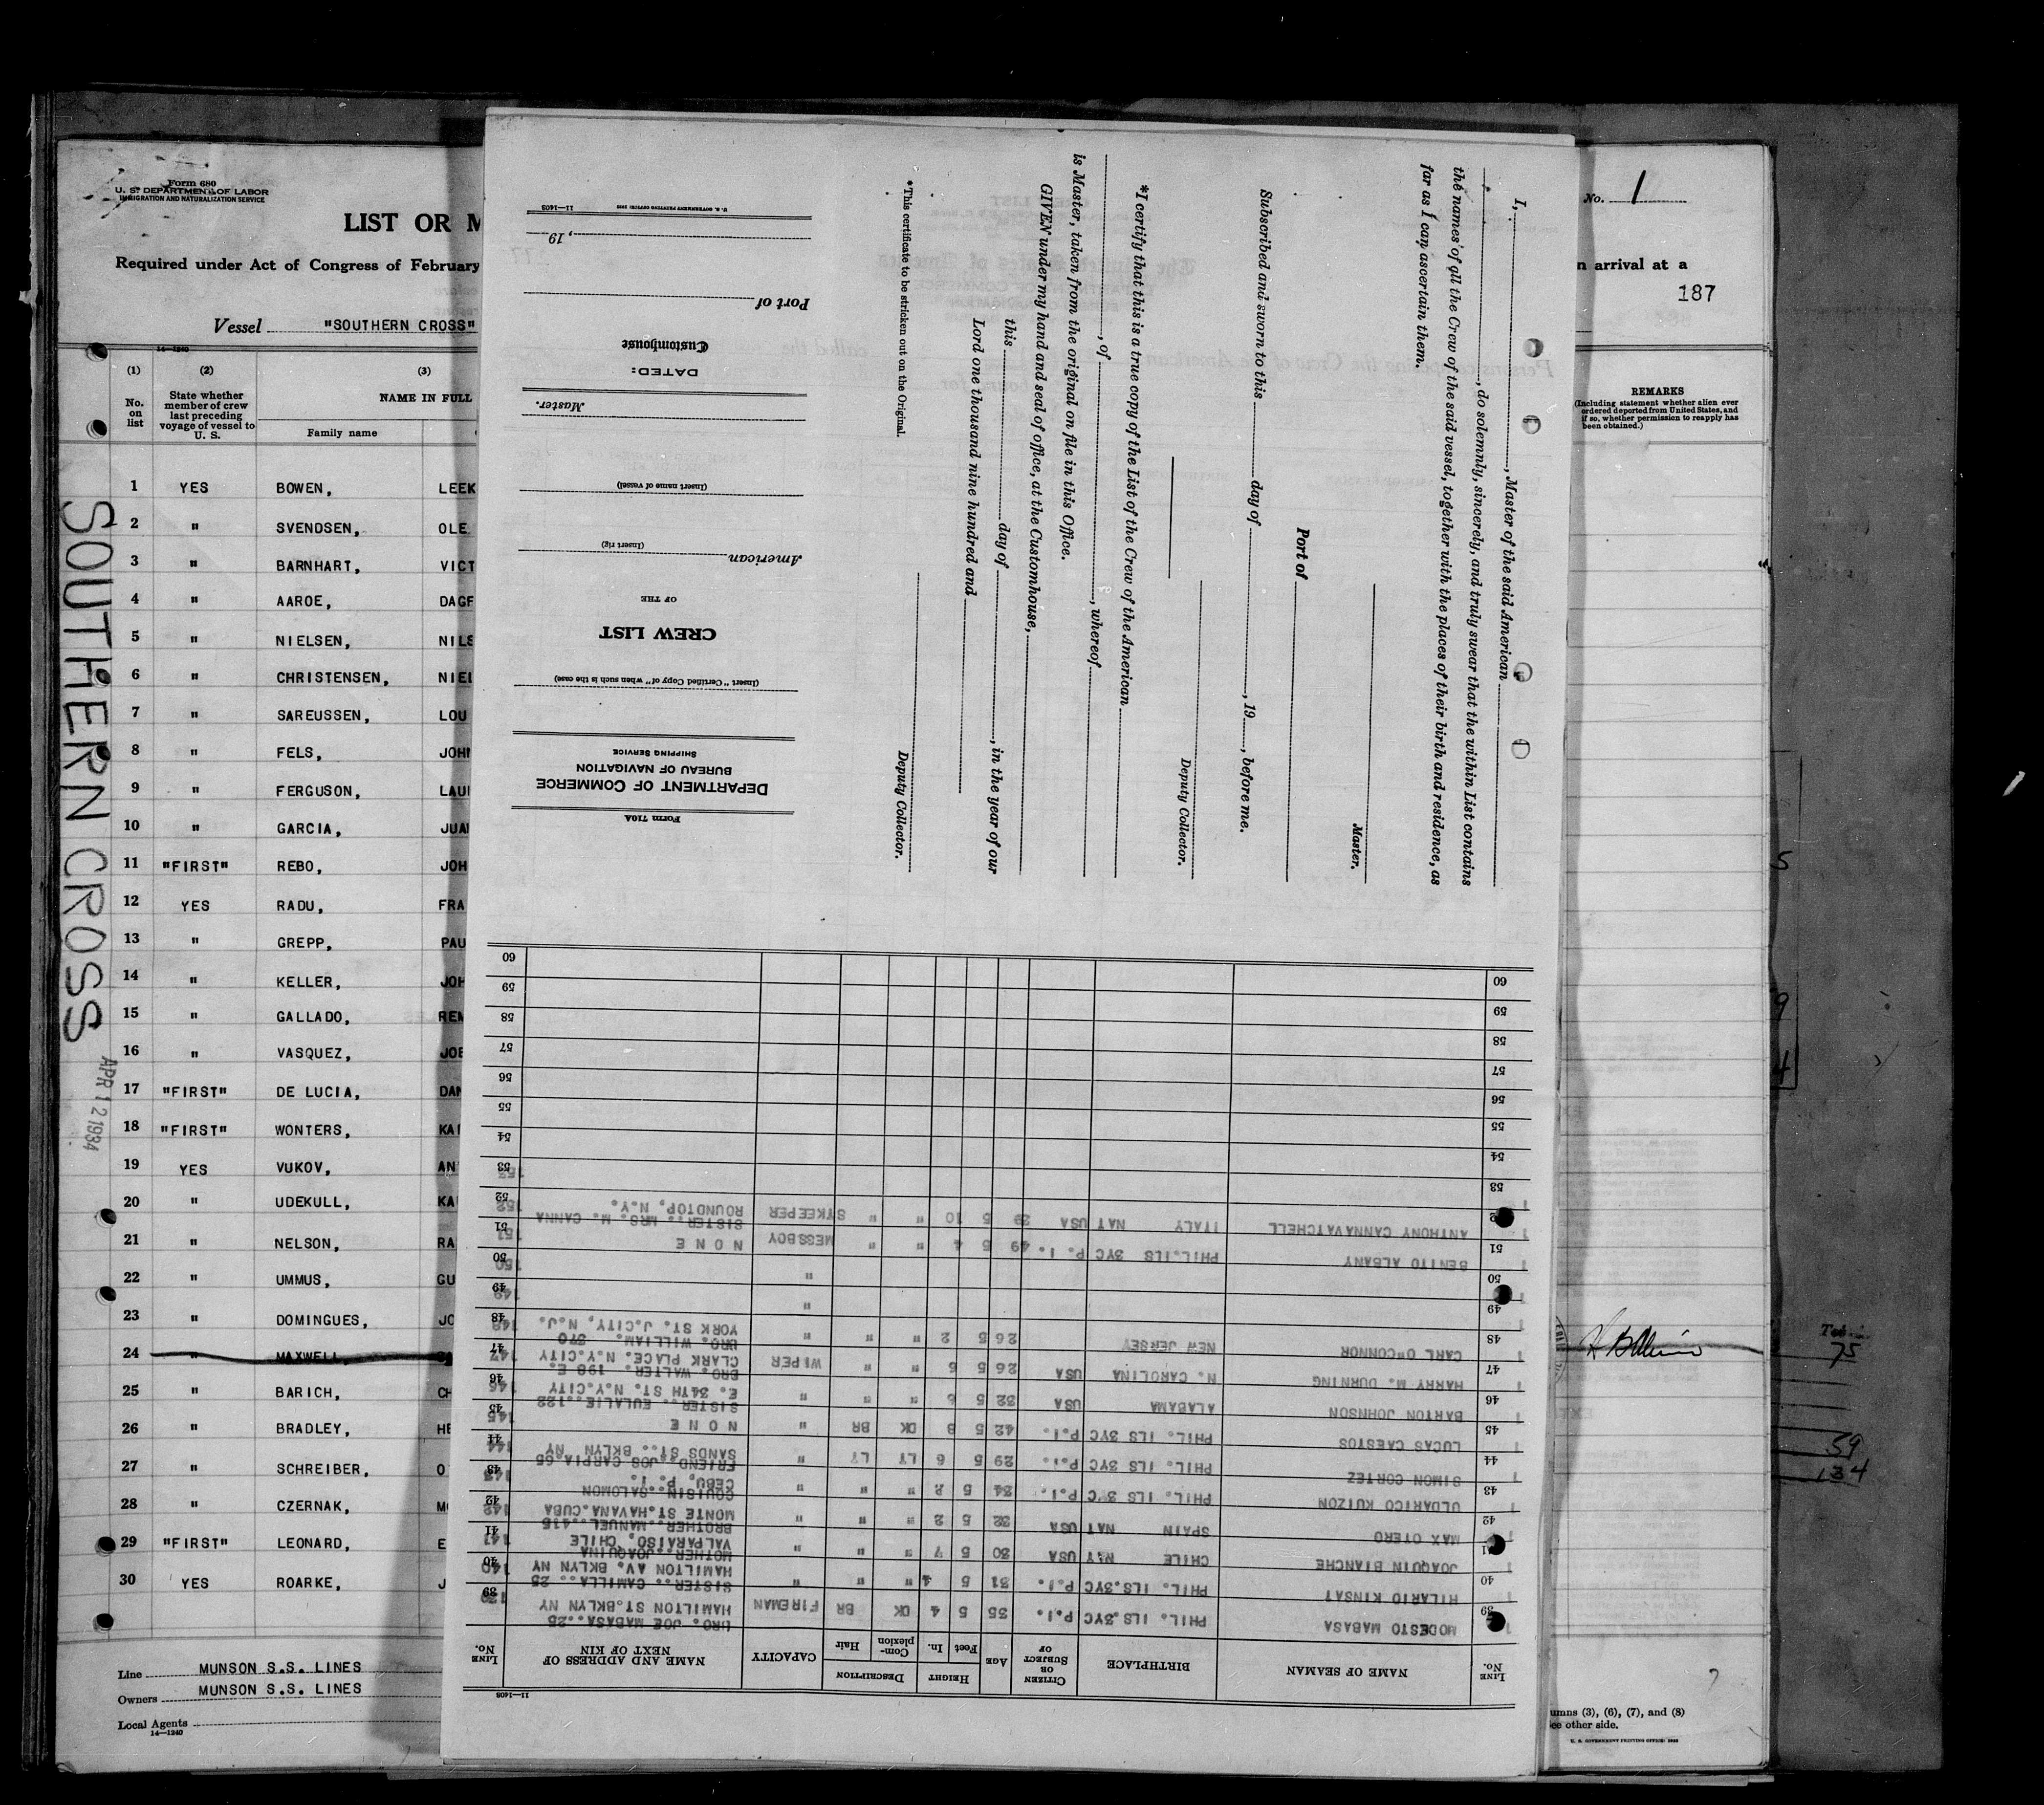 Form 680
U. S. DEPARTMENT OF LABOR
IMMIGRATION AND NATURALIZATION SERVICE
LIST OR M
Required under Act of Congress of February
Vessel "SOUTHERN CROSS"
14—1240
(1) (2) (3)
No. on list
State whether member of crew last preceding voyage of vessel to U. S.
NAME IN FULL
Family name
1 YES BOWEN, LEEK
2 " SVENDSEN, OLE
3 " BARNHART, VICT
4 " AAROE, DAGF
5 " NIELSEN, NILS
6 " CHRISTENSEN, NIEL
7 " SAREUSSEN, LOU
8 " FELS, JOHN
9 " FERGUSON, LAU
10 " GARCIA, JUA
11 "FIRST" REBO, JOH
12 YES RADU, FRA
13 " GREPP, PAU
14 " KELLER, JOH
15 " GALLADO, REM
16 " VASQUEZ, JOE
17 "FIRST" DE LUCIA, DAN
18 "FIRST" WONTERS, KA
19 YES VUKOV, AN
20 " UDEKULL, KA
21 " NELSON, RA
22 " UMMUS, GU
23 " DOMINGUES, JO
24 " MAXWELL
25 " BARICH, CH
26 " BRADLEY, HE
27 " SCHREIBER, O
28 " CZERNAK, M
29 "FIRST" LEONARD, E
30 YES ROARKE, J
Line MUNSON S.S. LINES
Owners MUNSON S.S. LINES
Local Agents
14—1240
SOUTHERN CROSS
APR 12 1934
I, , Master of the said American
, do solemnly, sincerely, and truly swear that the within List contains
the names of all the Crew of the said vessel, together with the places of their birth and residence, as
far as I can ascertain them.
Master.
Port of
Subscribed and sworn to this day of , 19 , before me.
Deputy Collector.
*I certify that this is a true copy of the List of the Crew of the American
, of , whereof
is Master, taken from the original on file in this Office.
GIVEN under my hand and seal of office, at the Customhouse,
this day of , in the year of our
Lord one thousand nine hundred and
Deputy Collector.
*This certificate to be stricken out on the Original.
Form 710A
DEPARTMENT OF COMMERCE
BUREAU OF NAVIGATION
SHIPPING SERVICE
(Insert "Certified Copy of" when such is the case)
CREW LIST
OF THE
American
(Insert rig)
(Insert name of vessel)
Master.
DATED:
Customhouse
Port of
, 19
U. S. GOVERNMENT PRINTING OFFICE 11—1408
11—1408
LINE No. NAME OF SEAMAN BIRTHPLACE CITIZEN OR SUBJECT OF AGE HEIGHT Feet In. DESCRIPTION Complexion Hair CAPACITY NAME AND ADDRESS OF NEXT OF KIN LINE No.
39 MODESTO MABASA PHIL. ILS.3YC P.I. 35 5 4 DK BR FIREMAN BRO. JOE MABASA..25 HAMILTON ST.BKLYN NY 39
40 HILARIO KINSAT PHIL. ILS.3YC P.I. 31 5 4 " " " SISTER.. CAMILLA.. 25 HAMILTON AV. BKLYN NY 40 140
41 JOAQUIN BIANCHE CHILE NAT USA 30 5 7 " " " MOTHER..JOAQUINA VALPARAISO, CHILE 41 141
42 MAX OTERO SPAIN NAT USA 32 5 2 " " " BROTHER..MANUEL..415 MONTE ST.HAVANA.CUBA 42 142
43 ULDARICO KUIZON PHIL. ILS 3YC P.I. 34 5 2 " " " COUSIN..SALOMON CEBU, P. I. 43 143
44 SIMON CORTEZ PHIL. ILS 3YC P.I. 29 5 6 LT LT " FRIEND..JOS CARPIA.65 SANDS ST.. BKLYN NY 44 144
45 LUCAS CAESTOS PHIL. ILS 3YC P.I. 42 5 8 DK BR " N O N E 45 145
46 BARTON JOHNSON ALABAMA USA 32 5 6 " " " SISTER.. EULALIE..122 E. 34TH ST. N.Y.CITY 46 146
47 HARRY M. DURNING N. CAROLINA USA 26 5 6 " " WIPER BRO. WALTER. 198 E. CLARK PLACE. N.Y.CITY 47 147
48 CARL O"CONNOR NEW JERSEY 26 5 2 " " " BRO. WILLIAM. 370 YORK ST. J.CITY. N.J. 48 148
49 " 49 149
50 " 50 150
51 BENITO ALBANY PHIL.ILS 3YC P.I. 49 5 4 " " MESSBOY N O N E 51 151
ANTHONY CANNAVATCHELL ITALY NAT USA 39 5 10 " " STKEEPER SISTER.. MRS. M. CANNA ROUNDTOP, N.Y. 52 152
53 53 153
54 54
55 55
56 56
57 57
58 58
59 59
60 60
No. 1
n arrival at a
187
REMARKS
(Including statement whether alien ever ordered deported from United States, and if so, whether permission to reapply has been obtained.)
5
9
4
75
59
134
umns (3), (6), (7), and (8)
ee other side.
U. S. GOVERNMENT PRINTING OFFICE: 1933